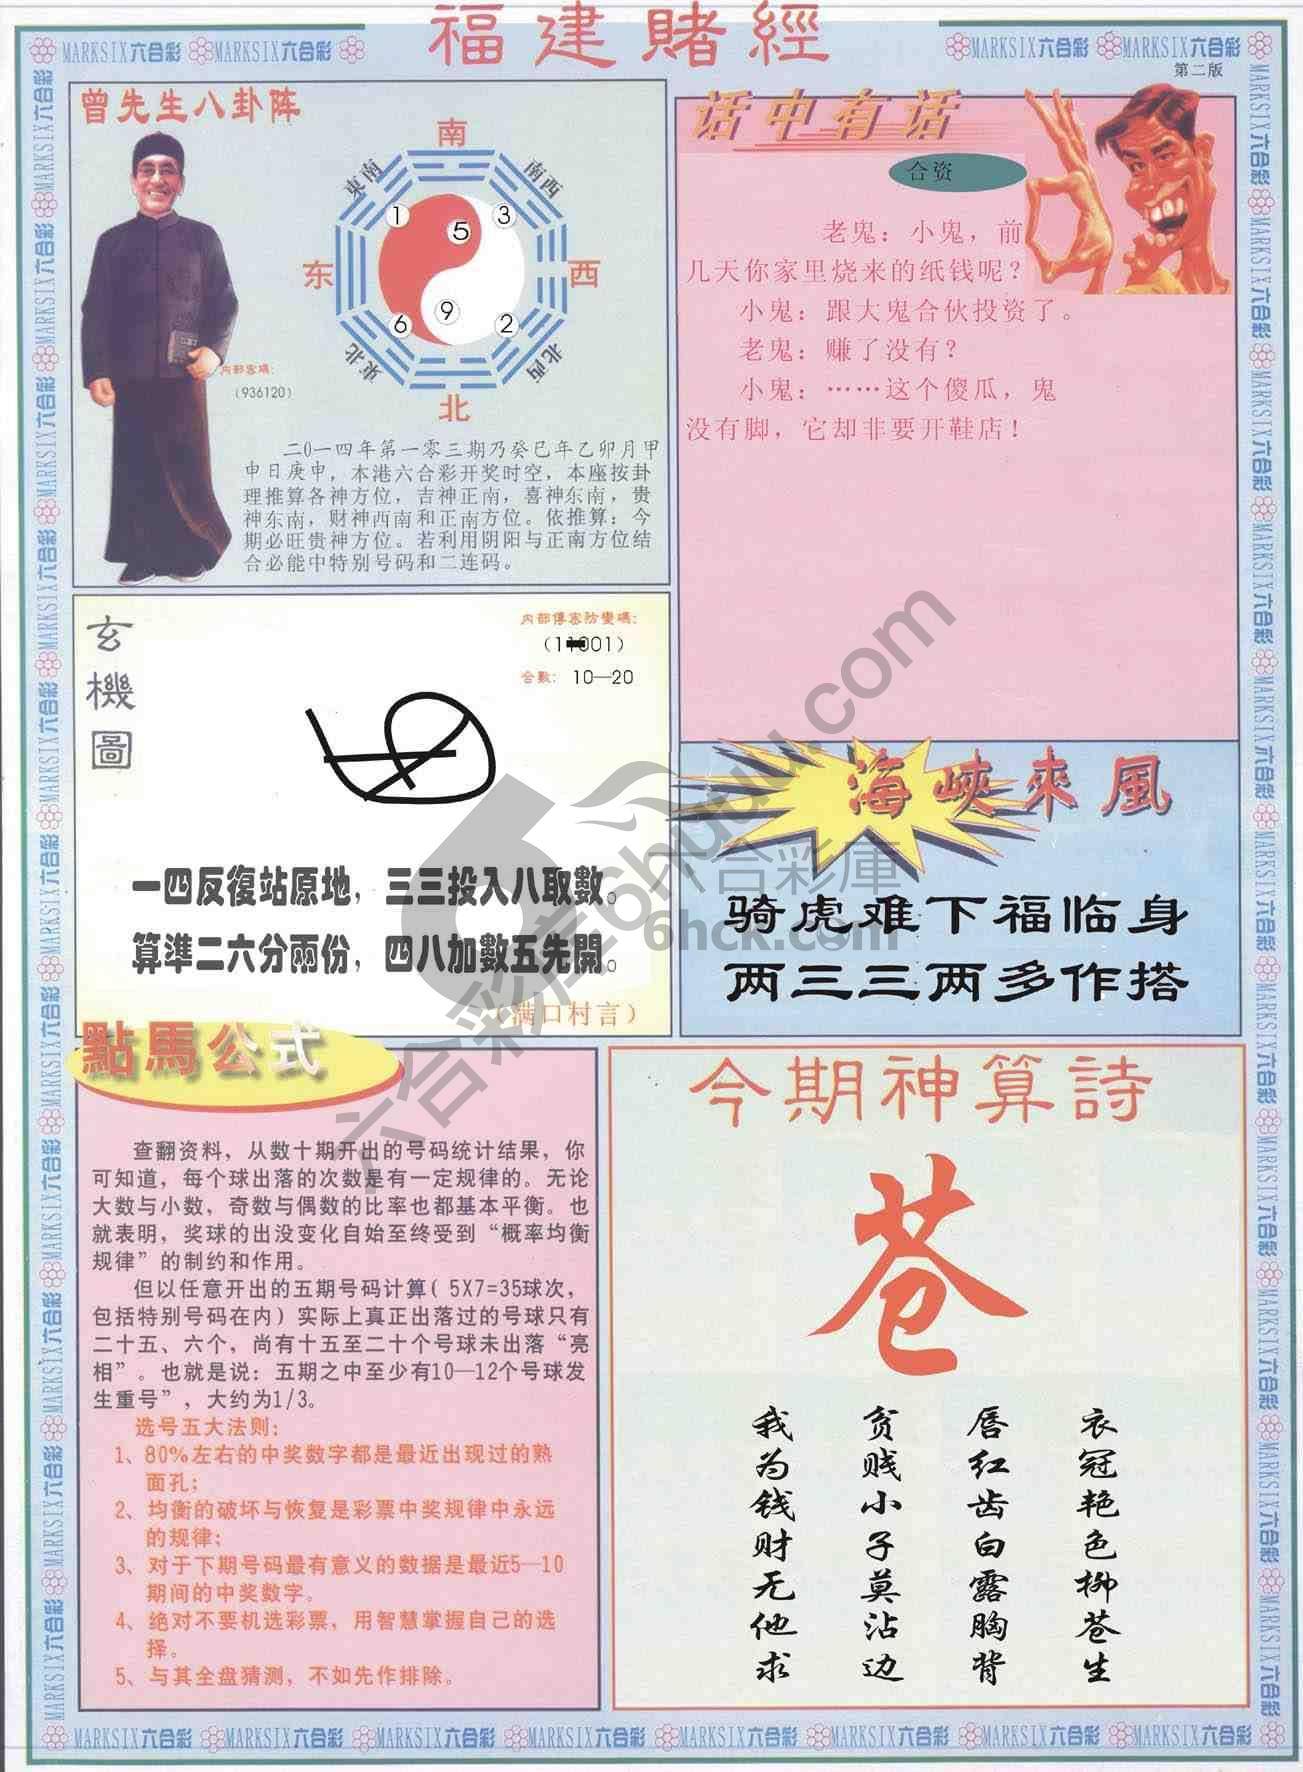 福建賭經
MARKSIX六合彩 MARKSIX六合彩
MARKSIX六合彩 MARKSIX六合彩
第二版
曾先生八卦阵
南
東南
南西
1
5
3
东
西
6
9
2
東北
北西
北
内部密碼:
(936120)
二0一四年第一零三期乃癸巳年乙卯月甲
申日庚申，本港六合彩开奖时空，本座按卦
理推算各神方位，吉神正南，喜神东南，贵
神东南，财神西南和正南方位。依推算：今
期必旺贵神方位。若利用阴阳与正南方位结
合必能中特别号码和二连码。
话中有话
合资
老鬼：小鬼，前
几天你家里烧来的纸钱呢？
小鬼：跟大鬼合伙投资了。
老鬼：赚了没有？
小鬼：……这个傻瓜，鬼
没有脚，它却非要开鞋店！
玄機圖
内部傳密防變碼:
合數: 10—20
一四反復站原地，三三投入八取數。
算準二六分兩份，四八加數五先開。
（满口村言）
海峽來風
骑虎难下福临身
两三三两多作搭
點馬公式
查翻资料，从数十期开出的号码统计结果，你
可知道，每个球出落的次数是有一定规律的。无论
大数与小数，奇数与偶数的比率也都基本平衡。也
就表明，奖球的出没变化自始至终受到“概率均衡
规律”的制约和作用。
但以任意开出的五期号码计算( 5X7=35球次，
包括特别号码在内）实际上真正出落过的号球只有
二十五、六个，尚有十五至二十个号球未出落“亮
相”。也就是说：五期之中至少有10—12个号球发
生重号”，大约为1/3。
选号五大法则：
1、80%左右的中奖数字都是最近出现过的熟
面孔；
2、均衡的破坏与恢复是彩票中奖规律中永远
的规律；
3、对于下期号码最有意义的数据是最近5—10
期间的中奖数字。
4、绝对不要机选彩票，用智慧掌握自己的选
择。
5、与其全盘猜测，不如先作排除。
今期神算詩
苍
衣冠艳色柳苍生
唇红齿白露胸背
贫贱小子莫沾边
我为钱财无他求
六合彩库6hcku.com
六合彩庫
6hck.com
MARKSIX六合彩 MARKSIX六合彩 MARKSIX六合彩 MARKSIX六合彩 MARKSIX六合彩 MARKSIX六合彩 MARKSIX六合彩 MARKSIX六合彩